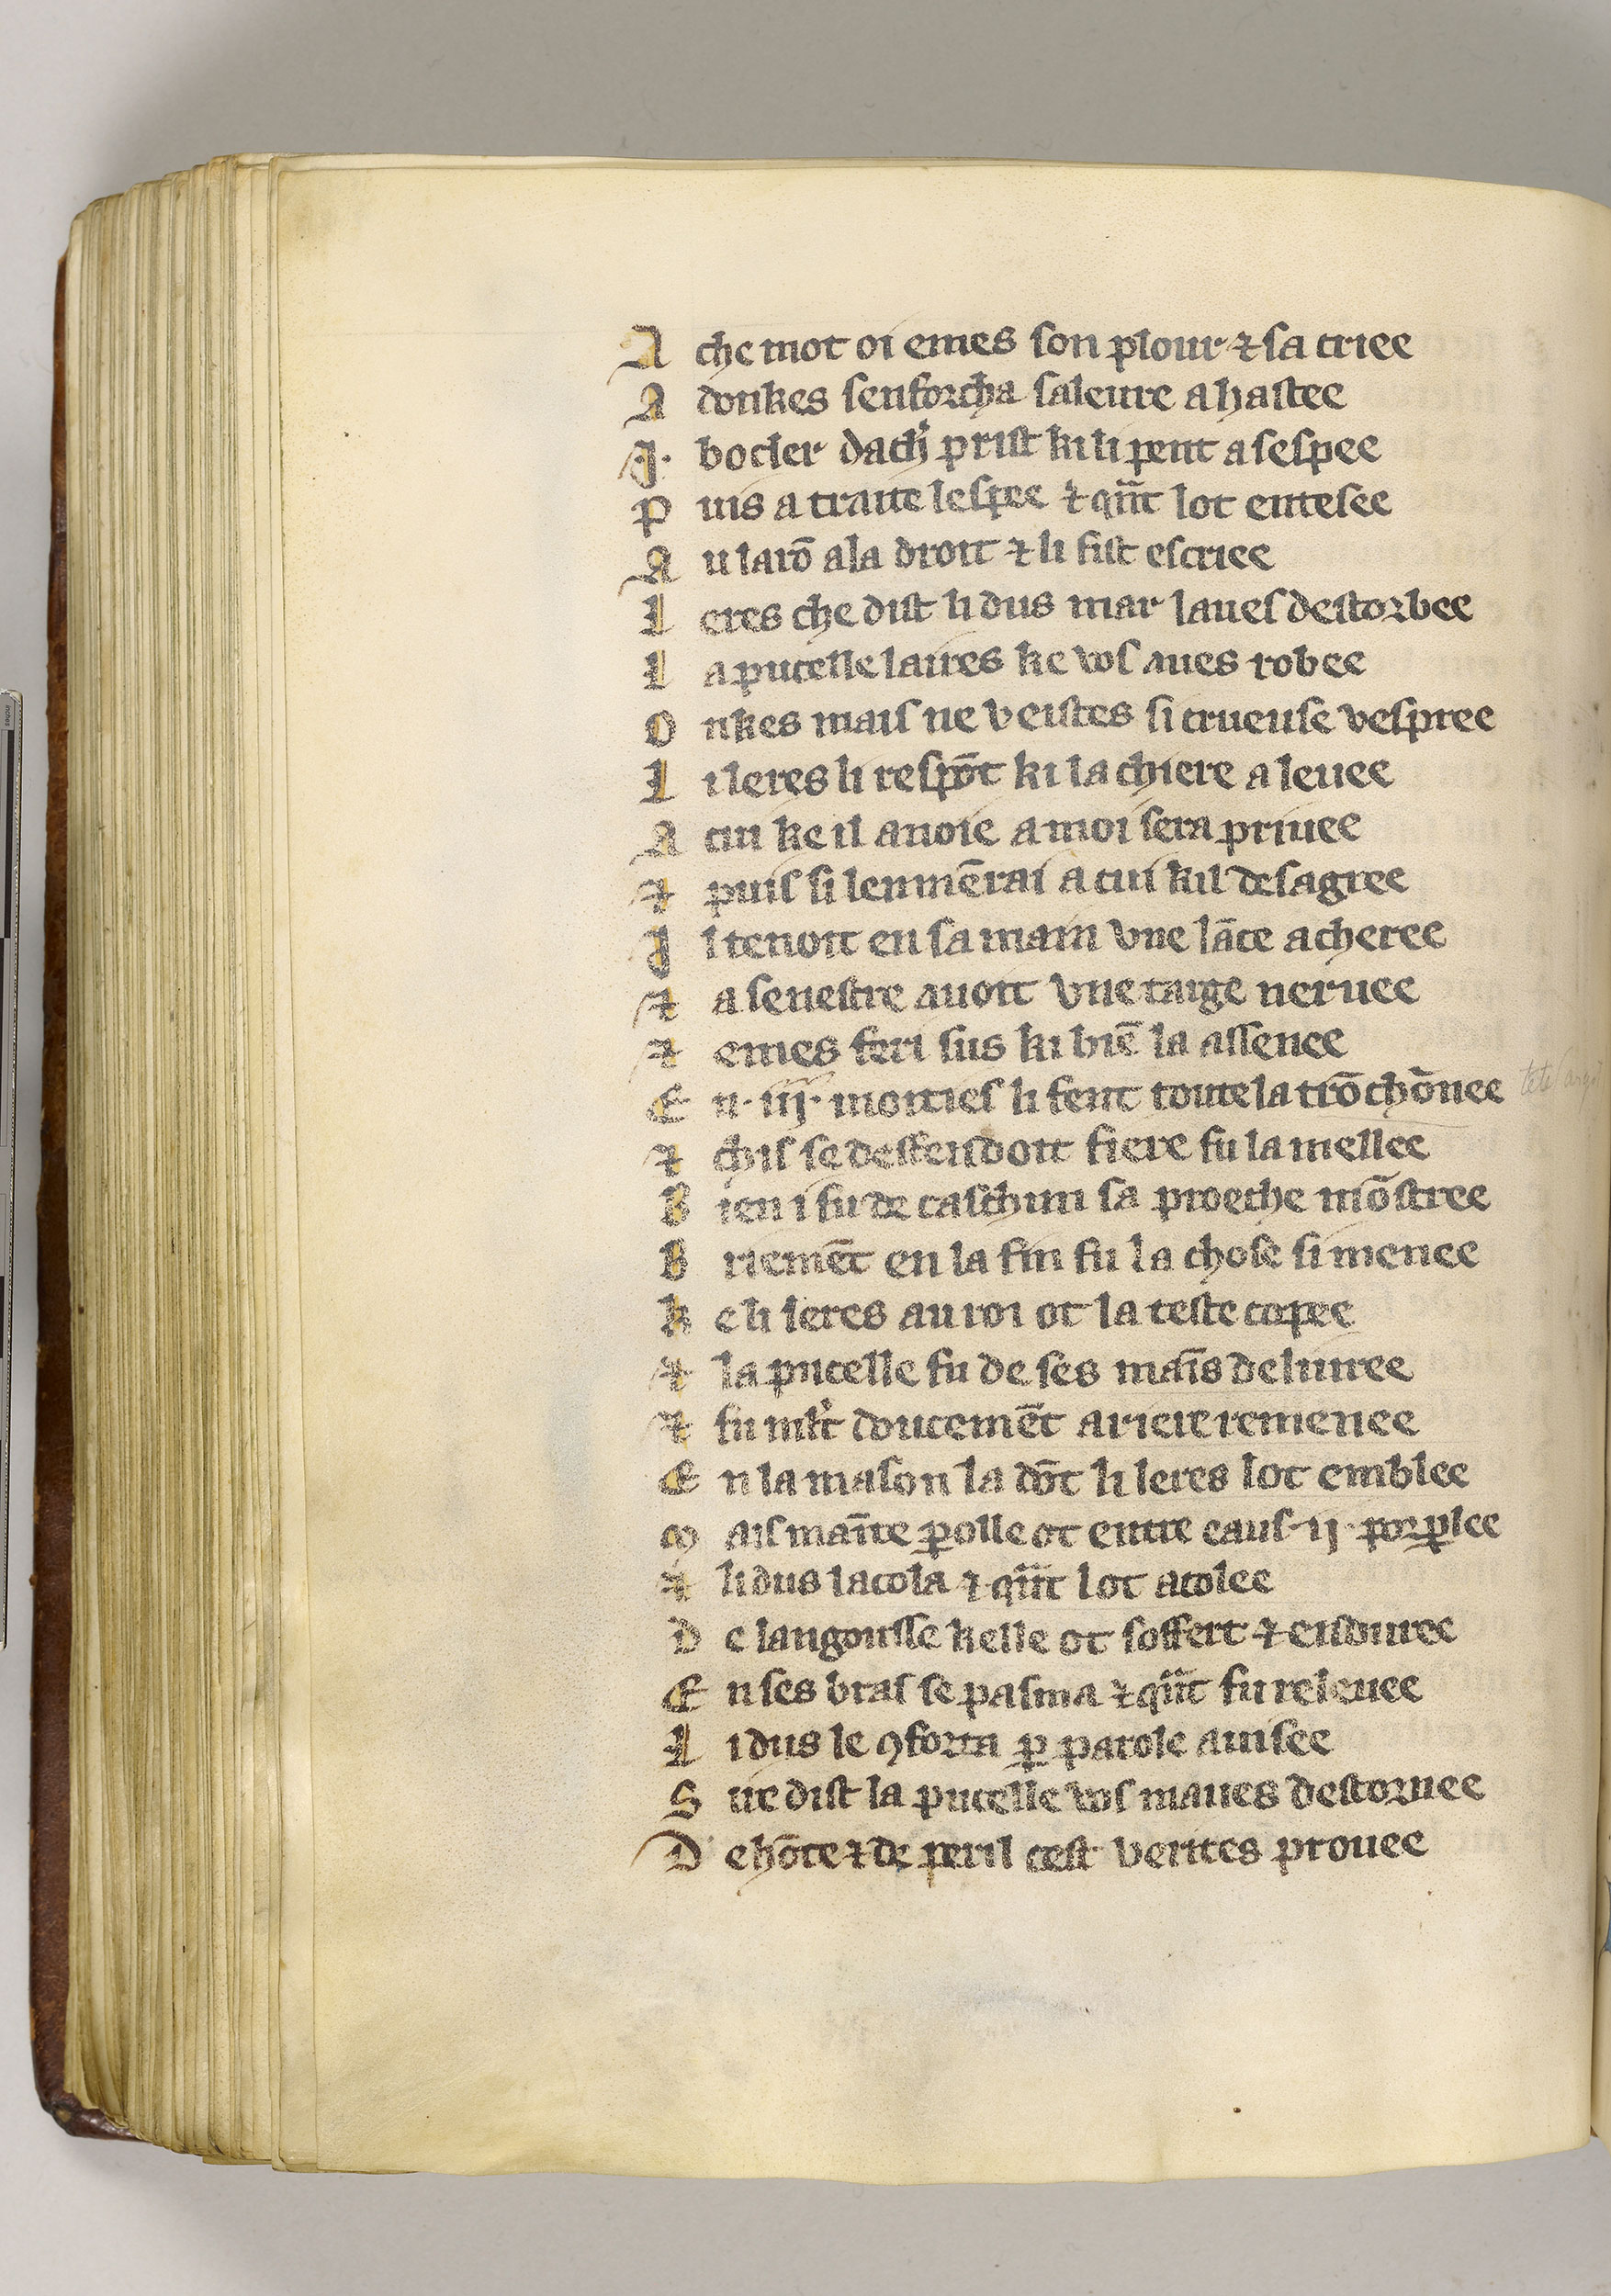 A che mot oi emes son plour ⁊ sa criee
A donkes senforcha saleure a hastee
.J. bocler dach͛ prist ki li pent a sespee
P uis a traite lespee ⁊ qn̄t lot entesee
A u larō ala droit ⁊ li fist escriee
L eres che dist li dus mar laues destorbee
L a pucelle laires ke vos aues robee
O nkes mais ne veistes si crueuse vespree
L i leres li respōt ki la chiere a leuee
A cui ke il anoie a moi sera priuee
⁊ puis si lenmērai a cui kil desagree
J l tenoit en sa main vne lāce acheree
⁊ a senestre auoit vne targe neruee
⁊ emes feri sus ki biē la assenee
E n .iij. moities li fent toute la trōchōnee
⁊ chil se deffendoit fiere fu la mellee
B ien i fu de caschun sa proeche mōstree
B riemēt en la fin fu la chose si menee
K e li leres au roi ot la teste copee
⁊ la pucelle fu de ses maīs deliuree
⁊ fu ml̓t doucemēt ariere remenee
E n la mason la dōt li leres lot emblee
M ais māte ꝑolle ot entre eaus .ij. porꝑlee
⁊ li dus lacola ⁊ qn̄t lot acolee
D e langousse kelle ot soffert ⁊ enduree
E n ses bras se pasma ⁊ qn̄t fu releuee
L i dus le ꝯforta ꝑ parole auisee
S ire dist la pucelle vos maues destornee
D e hōte ⁊ de peril cest verites prouee